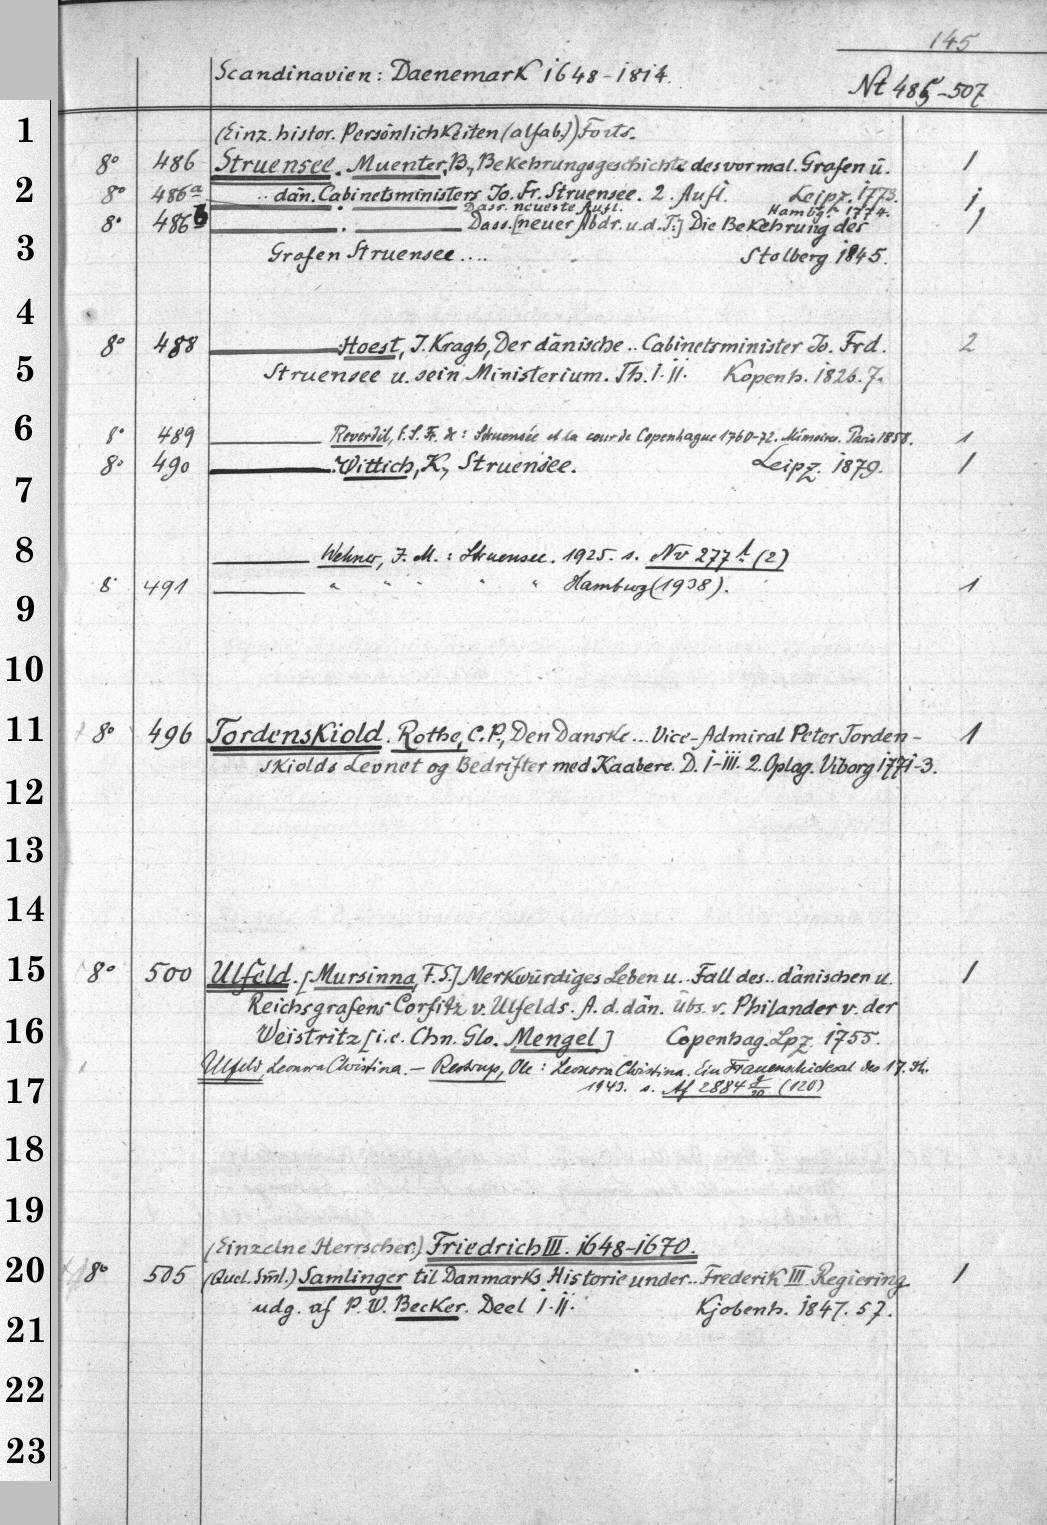 145
Scandinavien: Daenemark 1648-1814.
Nt 485-507
1
(Einz. histor. Persönlichkeiten (alfab.)) Forts.
8° 486 Struensee. Muenter, B., Bekehrungsgeschichte des vormal. Grafen u. 1
2
8° 486a .. dän. Cabinetsministers Jo. Fr. Struensee. 2. Aufl. Leipz. 1773. 1
Dass. neueste Aufl. Hambg. 1774.
8° 486b . Dass. [neuer Abdr. u. d. T:] Die Bekehrung des 1
3
Grafen Struensee .... Stolberg 1845.
4
8° 488 Hoest, J. Kragh, Der dänische .. Cabinetsminister Jo. Frd. 2
5
Struensee u. sein Ministerium. Th. I. II. Kopenh. 1826. 7.
6
8° 489 Reverdil, : Struensée et la cour de Copenhague 1760-72. Mémoires. Paris 1858. 1
8° 490 Wittich, K., Struensee. Leipz. 1879. 1
7
8
Wehner, J. M. : Struensee. 1925. s. Nv 277 (2)
8° 491 " " " " " Hamburg (1938). 1
9
10
11
8° 496 Tordenskiold. Rothe, C. P., Den Danske ... Vice-Admiral Peter Torden- 1
skiolds Levnet og Bedrifter med Kaabere. D. I-III. 2. Oplag. Viborg 1771-3.
12
13
14
15
8° 500 Ulfeld. [Mursinna, F. S.] Merkwürdiges Leben u. . Fall des .. dänischen u. 1
Reichsgrafens Corfitz v. Ulfelds. A. d. dän. übs. v. Philander v. der
16
Weistritz [i. e. Chn. Glo. Mengel] Copenhag. Lpz 1755.
Ulfeld, Leonora Christina. – Restrup, Ole : Leonora Christina. Ein Frauenschicksal des 17. Jh.
17
1943. s. Af 2884 (120)
18
19
(Einzelne Herrscher.) Friedrich III. 1648-1670.
20
8° 505 (Quel. Sml.) Samlinger til Danmarks Historie under .. Frederik III Regiering 1
udg. af P. W. Becker. Deel I. II. Kjobenh. 1847. 57.
21
22
23